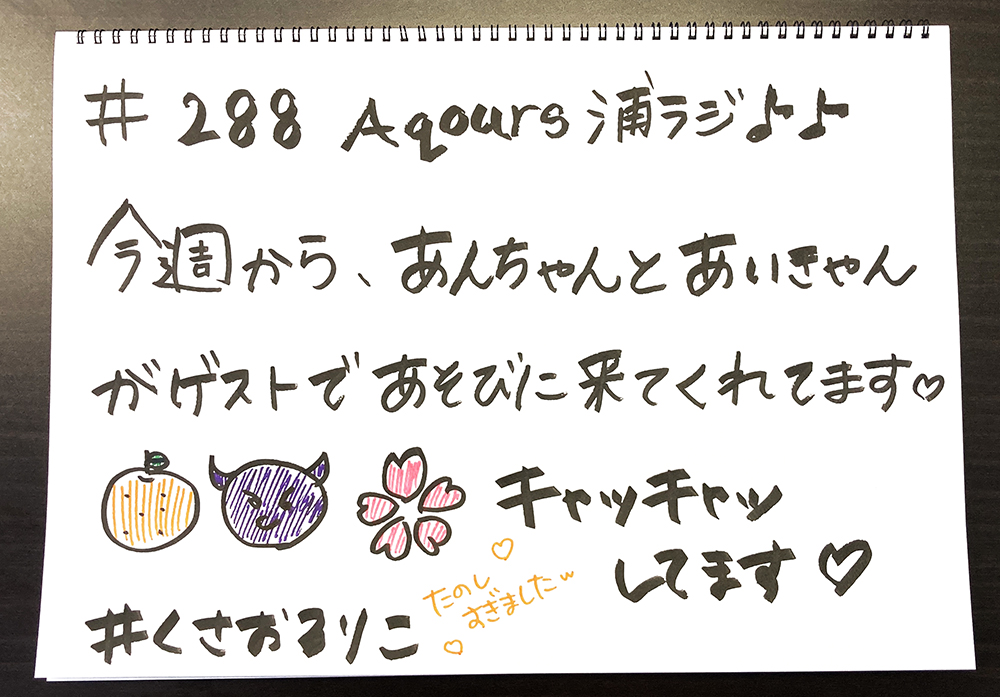 # 288 Aqours 浦ラジ♪♪
今週から、あんちゃんとあいきゃん
がゲストであそびに来てくれてます♡
キャッキャッ
してます♡
たのし
すぎましたw
#くさおるりこ